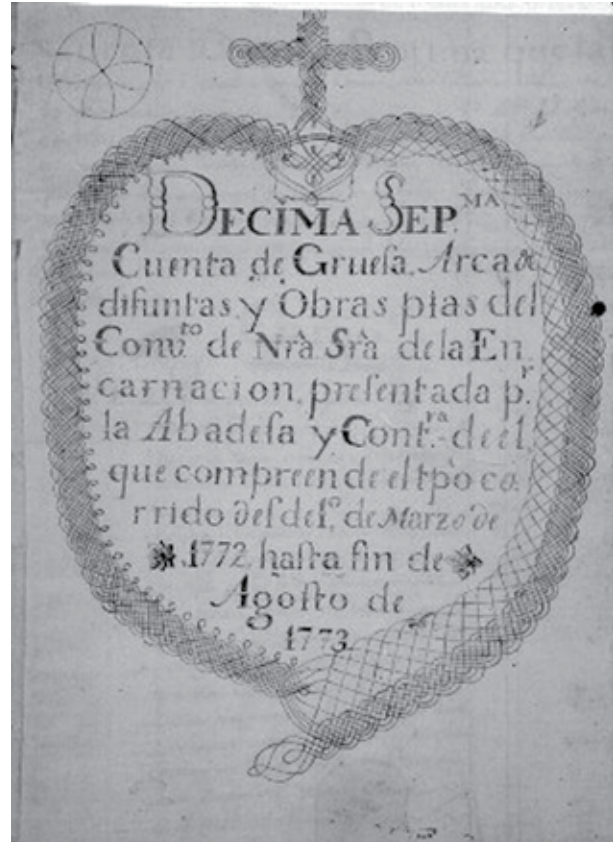 DECIMA SEP.MA
Cuenta de Gruesa, Arca de
difuntas, y Obras pias del
Conv.to de Nrà. Srà. de la En
carnacion, presentada p.r
la Abadesa y Cont.ra de el,
que compreende el tpo co
rrido desdel.o de Marzo de
1772. hasta fin de
Agosto de
1773.